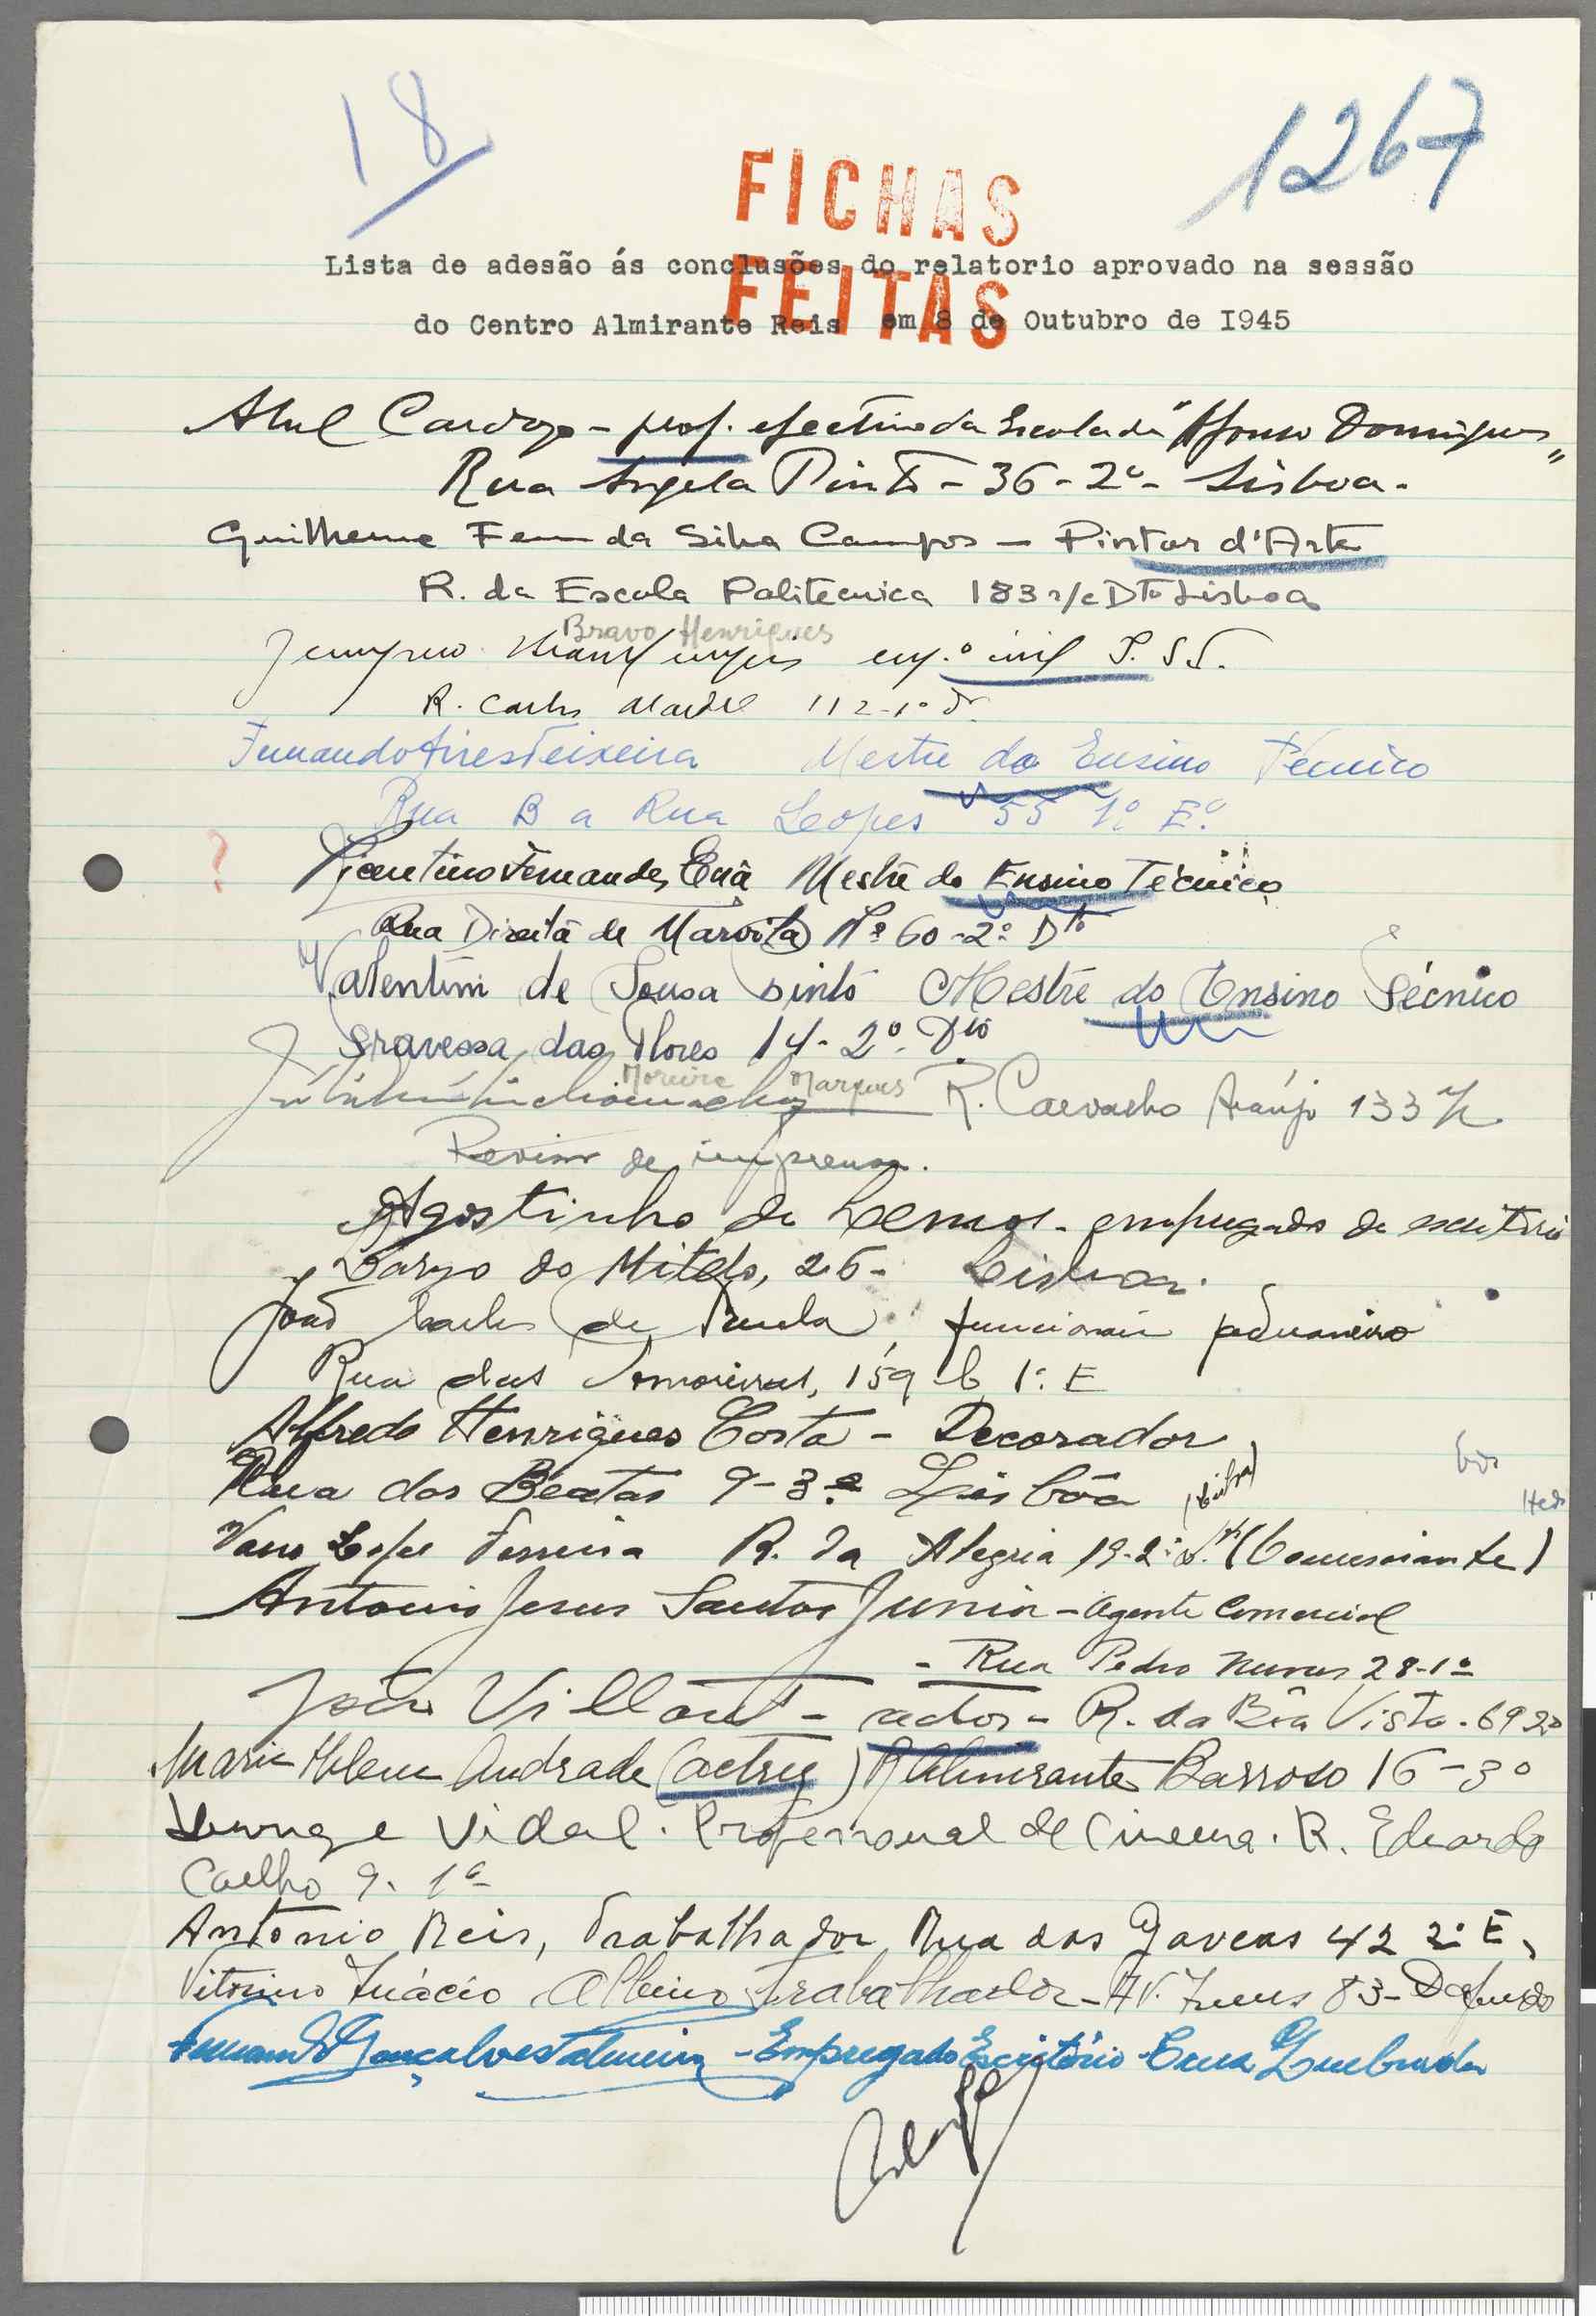 18
1267
FICHAS
FEITAS
Lista de adesão ás conclusões do relatorio aprovado na sessão
do Centro Almirante Reis em 8 de Outubro de I945
Abel Cardoso - prof. efectivo da Escola de "Afonso Domingues"
Rua Angela Pinto - 36 - 2º - Lisboa.
Guilherme Fern da Silva Campos - Pintor d'Arte
R. da Escola Politecnica 183 r/c Dto Lisboa
Bravo Henriques
eng.º civil I.S.T.
R. Carlos Mardel 112-1º D.
Fernando Aires Teixeira Mestre do Ensino Técnico
Rua B a Rua Lopes 55 1º Eº.
? Vicentino Fernandes Mestre do Ensino Técnico
Rua Direita de Marvila Nº 60-2º Dto
Valentim de Sousa Pinto Mestre do Ensino Técnico
Travessa das Flores 14-2º Dto
Moreira Marques
R. Carvalho Araújo 133
Revisor de imprensa.
Agostinho de Lemos - empregado de escritório
Largo do Mitelo, 26 - Lisboa.
João Carlos de Paula, funcionário aduaneiro
Rua das Amoreiras, 159 b 1º E
Alfredo Henriques Costa - Decorador
Rua das Beatas 9-3º Lisbôa
Vasco Lopes Ferreira R. da Alegria 19-2º D. (Comerciante)
Antonio Jesus Santos Junior - Agente Comercial
- Rua Pedro Nunes 28-1º
João Villaret - actor - R. da Bôa Vista - 69 2º
Maria Helena Andrade (actriz) R Almirante Barroso 16-3º
Vidal. Profissional de Cinema. R. Eduardo
Coelho 9. 1º
António Reis, Trabalhador Rua das Gaveas 42 2º E,
Vitorino Inácio Albino Trabalhador - AV. Ivens 83 - Dafundo
Fernando Gonçalves Talmeira - Empregado Escritório - Cruz Quebrada